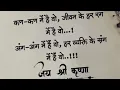 कण-कण में है वो, जीवन के हर क्षण में है
वो...!
अंग-अंग में है वो, हर व्यक्ति के संग में है
वो..!!!
जय श्री कृष्णा